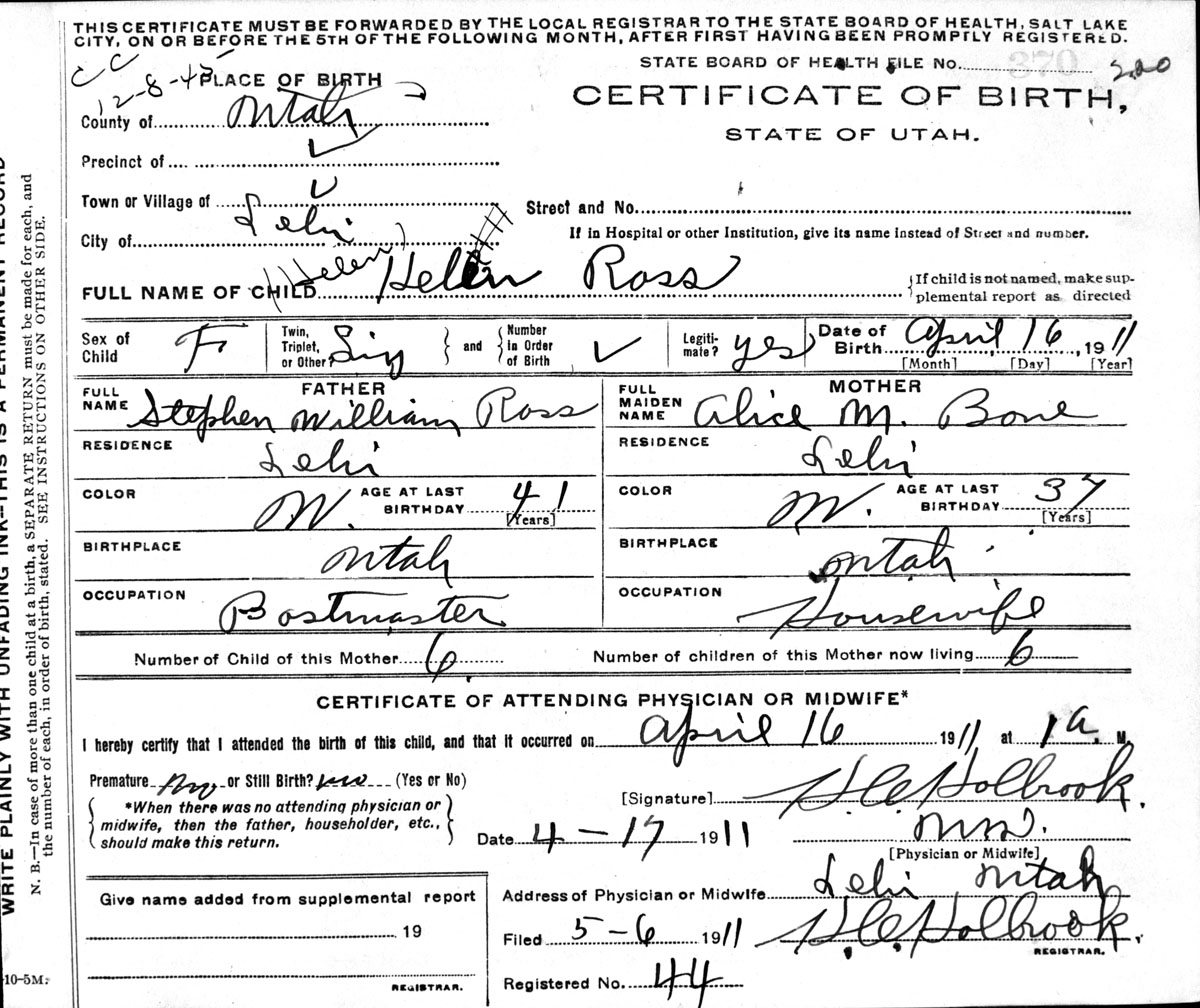 THIS CERTIFICATE MUST BE FORWARDED BY THE LOCAL REGISTRAR TO THE STATE BOARD OF HEALTH, SALT LAKE
CITY, ON OR BEFORE THE 5TH OF THE FOLLOWING MONTH, AFTER FIRST HAVING BEEN PROMPTLY REGISTERED.
STATE BOARD OF HEALTH FILE No. 370 220
CC
12-8-42
PLACE OF BIRTH
CERTIFICATE OF BIRTH,
STATE OF UTAH.
County of Utah
Precinct of
Town or Village of
Street and No.
City of Lehi
If in Hospital or other Institution, give its name instead of Street and number.
(Helen)
FULL NAME OF CHILD Helen Ross
{If child is not named, make sup-
plemental report as directed
Sex of Child F
Twin, Triplet, or Other? Sing } and { Number in Order of Birth
Legiti-mate? yes
Date of Birth April 16, 1911
[Month] [Day] [Year]
FATHER
FULL NAME Stephen William Ross
MOTHER
FULL MAIDEN NAME Alice M. Bone
RESIDENCE Lehi
RESIDENCE Lehi
COLOR W. AGE AT LAST BIRTHDAY 41 [Years]
COLOR W. AGE AT LAST BIRTHDAY 37 [Years]
BIRTHPLACE Utah
BIRTHPLACE Utah
OCCUPATION Postmaster
OCCUPATION Housewife
Number of Child of this Mother 6. Number of children of this Mother now living 6
CERTIFICATE OF ATTENDING PHYSICIAN OR MIDWIFE*
I hereby certify that I attended the birth of this child, and that it occurred on April 16 1911 at 1 a. M.
Premature no or Still Birth? no (Yes or No)
*When there was no attending physician or
midwife, then the father, householder, etc.,
should make this return.
[Signature] H. C. Holbrook.
Date 4-17 1911 M.D.
[Physician or Midwife]
Give name added from supplemental report
19
REGISTRAR.
Address of Physician or Midwife Lehi Utah
Filed 5-6 1911 H. C. Holbrook.
REGISTRAR.
Registered No. 44
WRITE PLAINLY WITH UNFADING INK—THIS IS A PERMANENT RECORD
N. B.—In case of more than one child at a birth, a SEPARATE RETURN must be made for each, and
the number of each, in order of birth, stated. SEE INSTRUCTIONS ON OTHER SIDE.
10-5M.